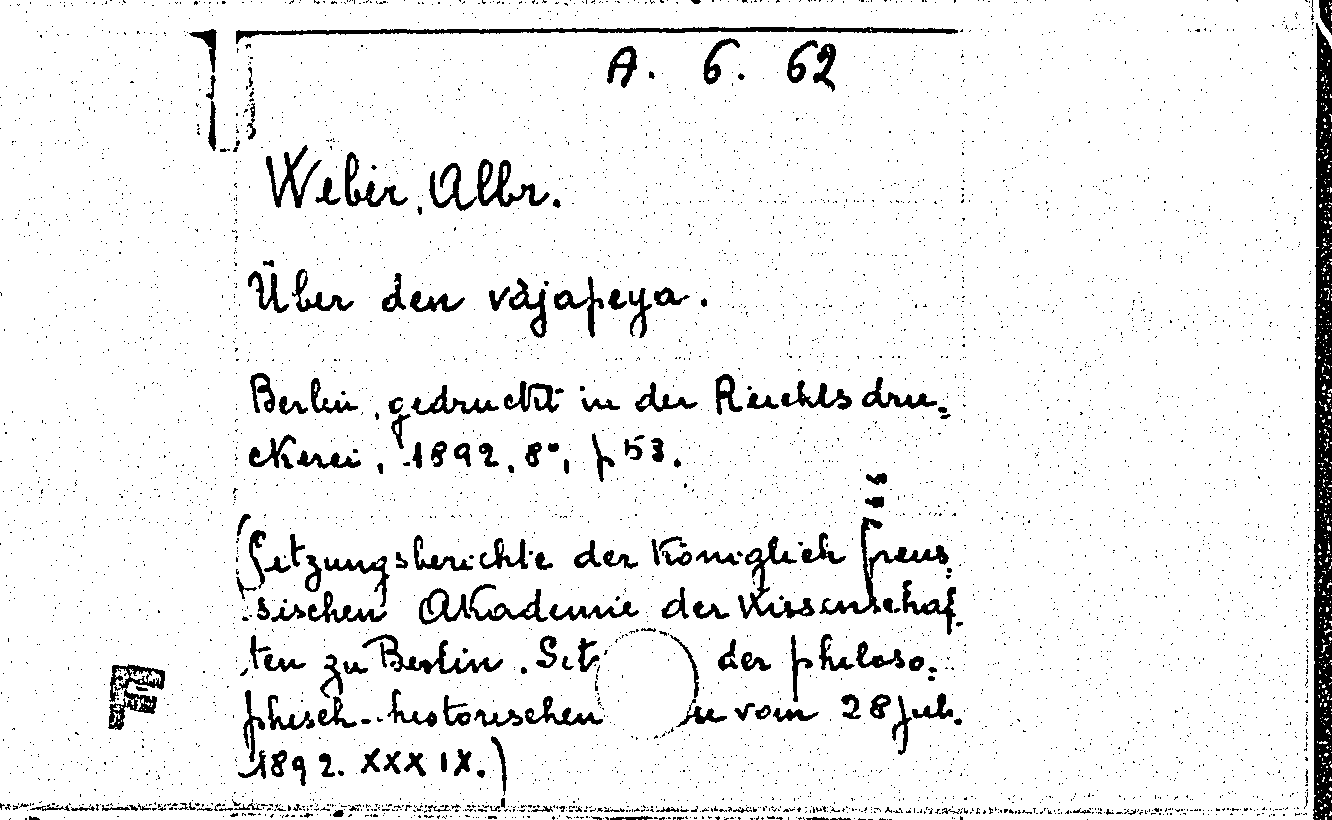 A. 6. 62
Weber, Albr.
Über den vàjapeya.
Berlin, gedruckt in der Reichsdru=
ckerei, 1892, 8°, p 53.
(Sitzungsberichte der Königlich preus
sischen Akademie der Wissenschaf
ten zu Berlin. Sit der philoso=
phisch-historischen vom 28 Juli.
1892. XXXIX.)
F